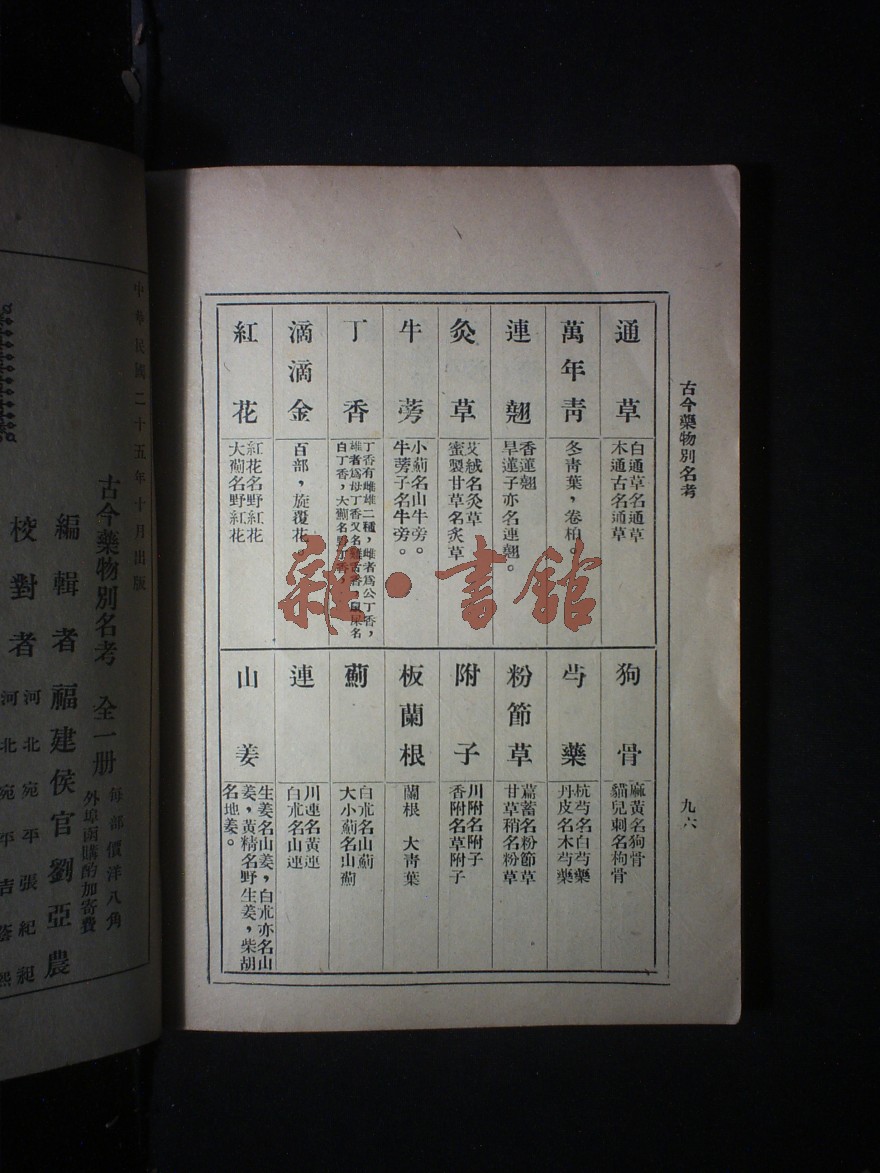 古今藥物別名考
九六
通草
白通草名通草
木通古名通草
萬年靑
冬靑葉，卷柏。
連翹
香蓮翹
旱蓮子亦名連翹。
灸草
艾絨名灸草
蜜製甘草名炙草
牛蒡
小薊名山牛旁。
牛蒡子名牛旁。
丁香
丁香有雌雄二種，雌者爲公丁香，
雄者爲母丁香又名雞舌香，鼠屎名
白丁香，大薊名野丁香。
滴滴金
百部，旋覆花
紅花
紅花名野紅花
大薊名野紅花
狗骨
麻黃名狗骨
貓兒刺名枸骨
芍藥
杭芍名白芍藥
丹皮名木芍藥
粉節草
萹蓄名粉節草
甘草稍名粉草
附子
川附名附子
香附名草附子
板蘭根
蘭根　大靑葉
薊
白朮名山薊
大小薊名山薊
連
川連名黃連
白朮名山連
山姜
生姜名山姜，白朮亦名山
姜，黃精名野生姜，柴胡
名地姜。
雜·書館
中華民國二十五年十月出版
古今藥物別名考　全一册
每部價洋八角
外埠函購酌加寄費
編輯者福建侯官劉亞農
校對者
河北宛平張紀昶
河北宛平吉蓉熙